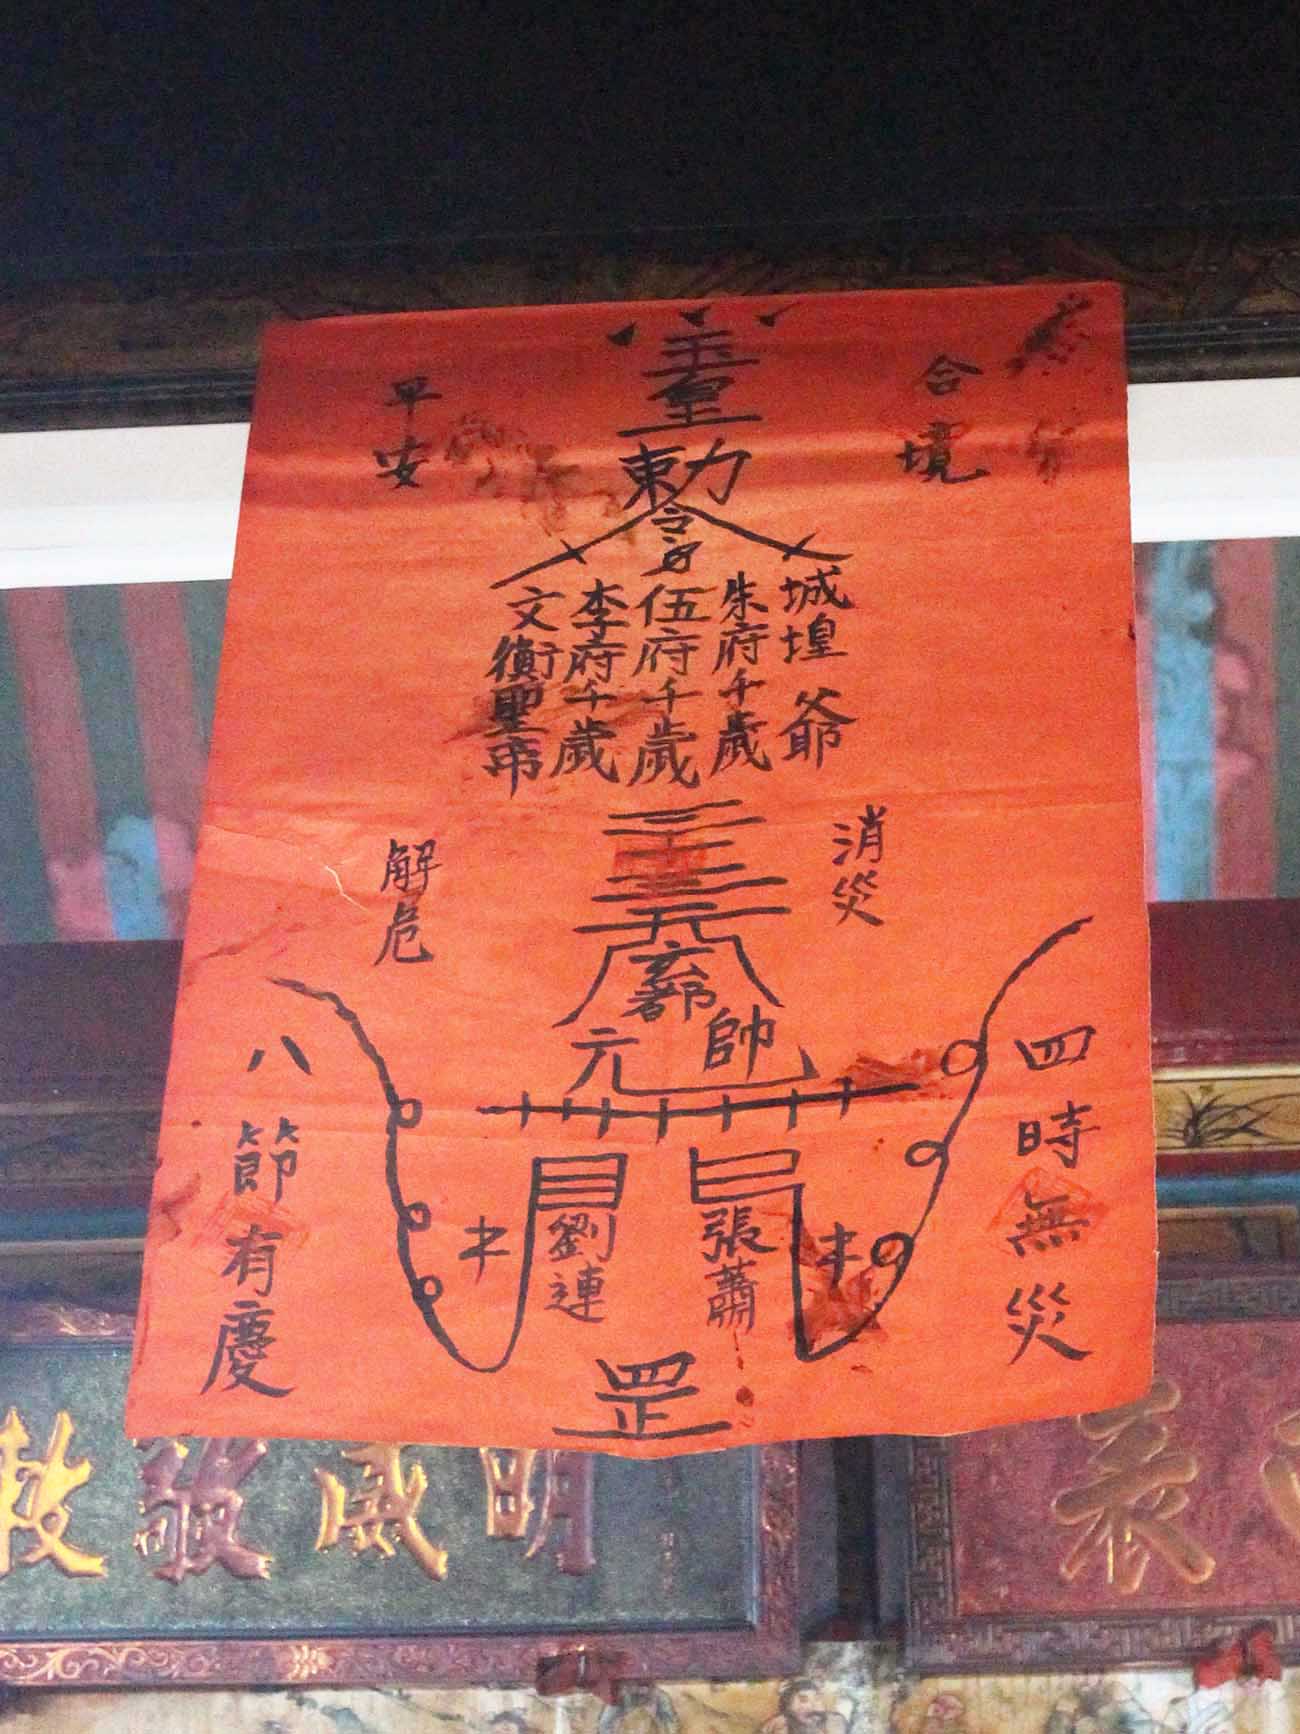 合境
平安
玉皇
勅令
城堭爺
朱府千歲
伍府千歲
李府千歲
文衡聖帝
消災
解危
玄都
元帥
四時無災
八節有慶
張蕭
劉連
罡
明威敬